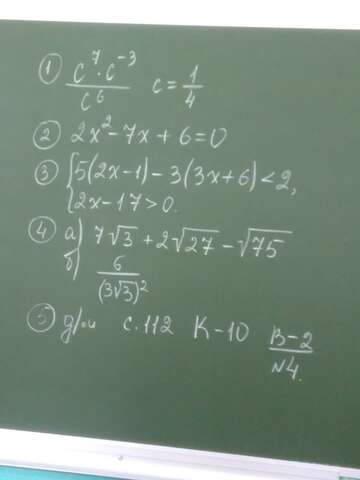 ① c⁷·c⁻³/c⁶ c=1/4
② 2x²-7x+6=0
③ {5(2x-1)-3(3x+6)<2,
2x-17>0.
④ а) 7√3+2√27-√75
б) 6/(3√3)²
⑤ д/и с.112 К-10 В-2/№4.